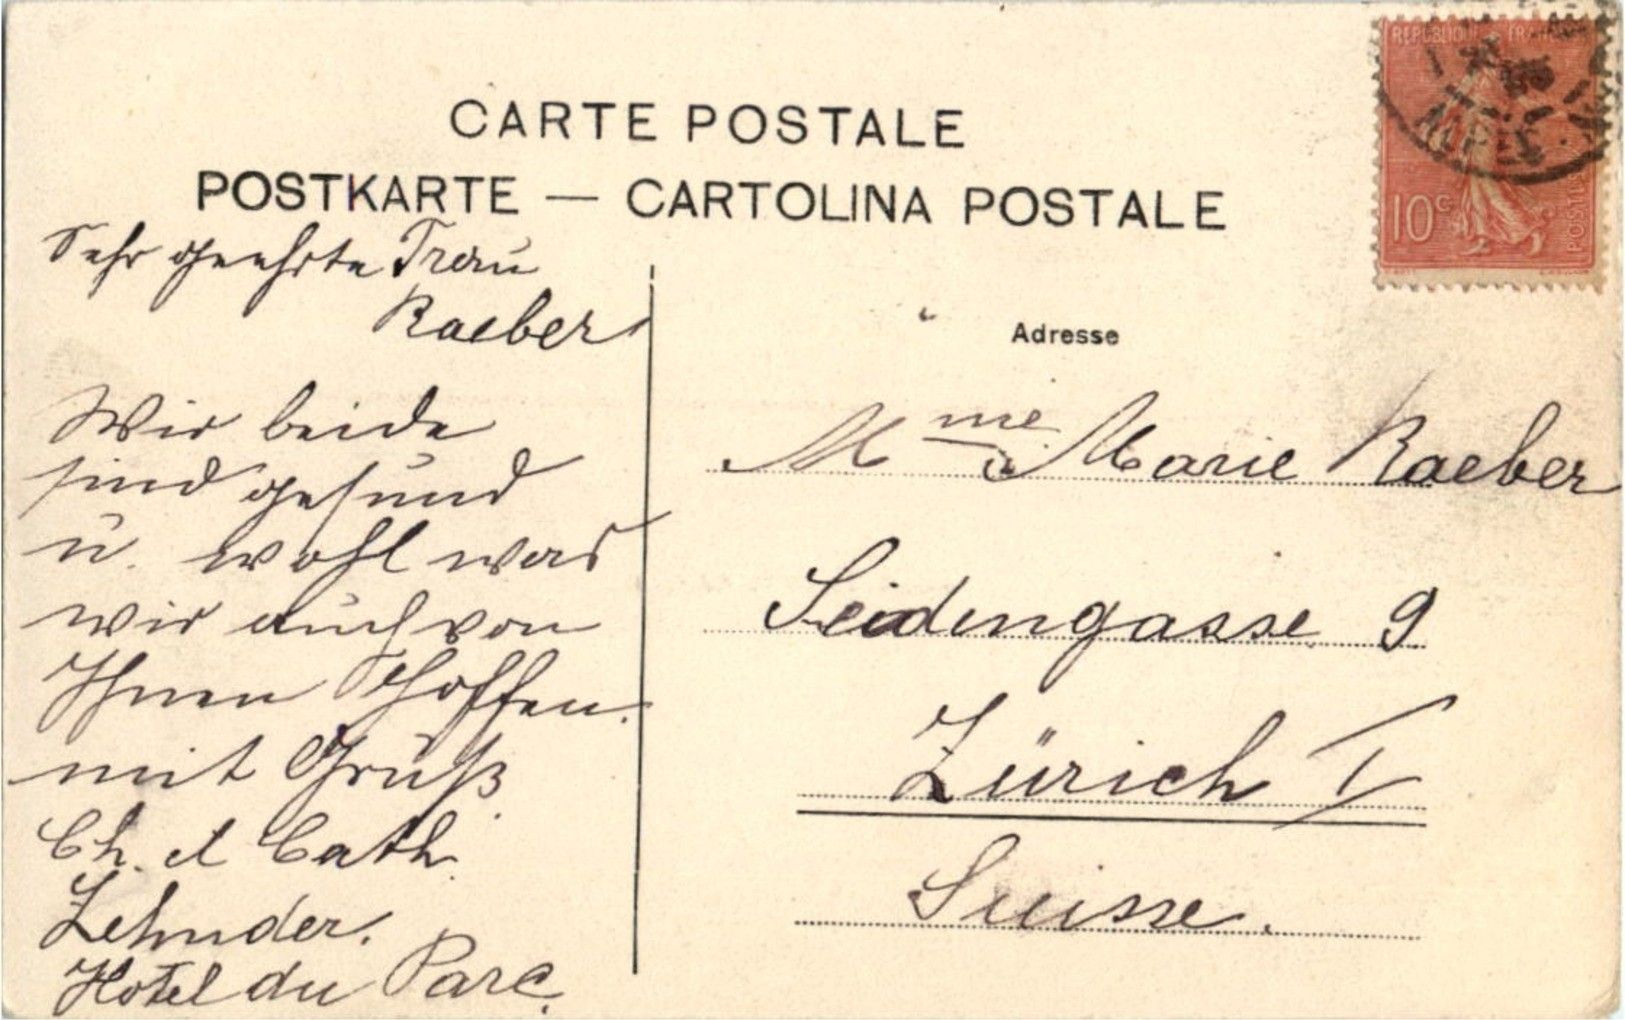 CARTE POSTALE
POSTKARTE — CARTOLINA POSTALE
REPUBLIQUE FRANÇAISE
10c
POSTES
ALPES
Sehr geehrte Frau
Raeber
Wir beide
sind gesund
u. wohl was
wir auch von
Ihnen hoffen.
mit Gruß
Ch. et Cath.
Zehnder.
Hotel du Parc.
Adresse
Mme Marie Raeber
Seidengasse 9
Zürich I
Suisse.